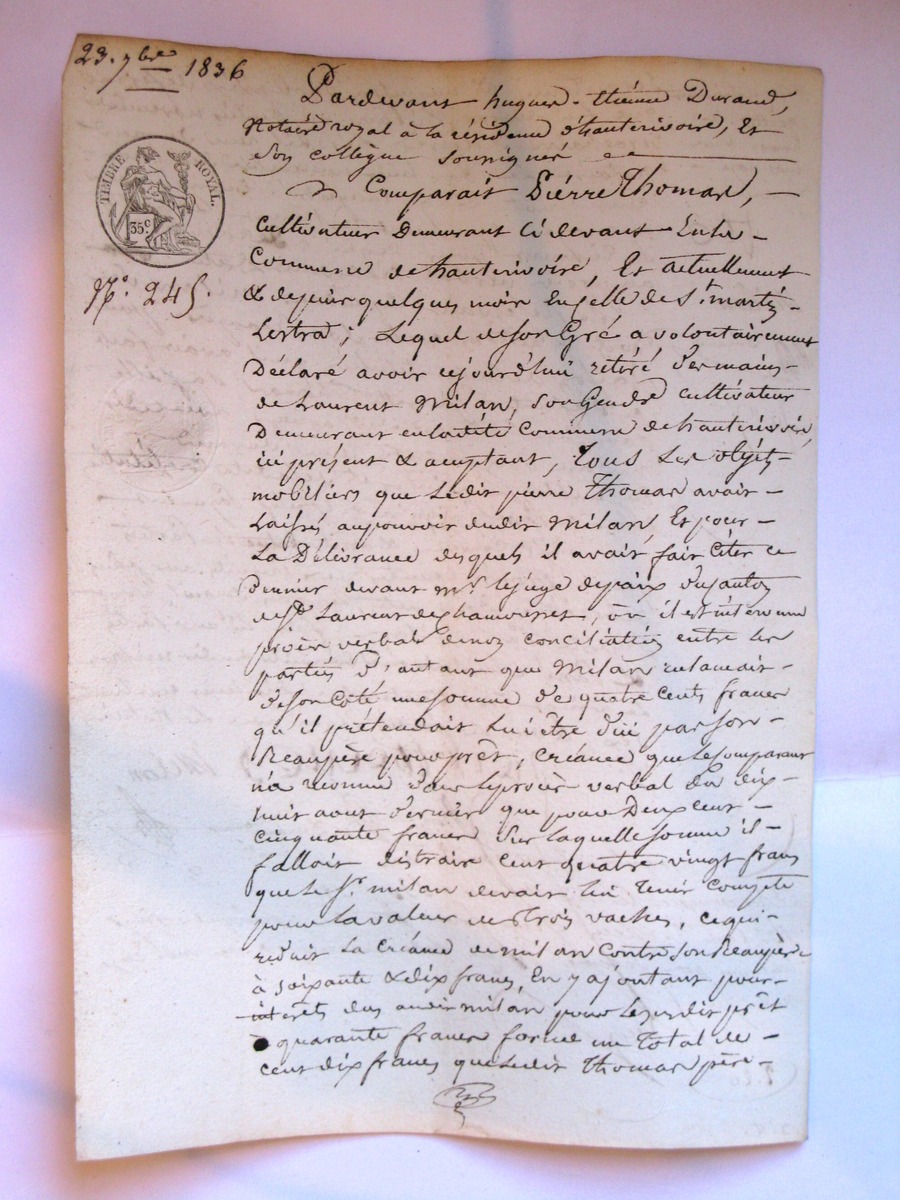 23. 7bre 1836
Pardevant hugues-étienne Durand,
Notaire royal à la résidence d'hauterivoire, Et
Son collègue soussignés
TIMBRE ROYAL.
35c
Comparait Pierre Thomas,
Cultivateur Demeurant Cidevant Enla
Commune de hauterivoire, Et actuellement
& depuis quelques mois En celle de St. martin
Lestra; Lequel de son Gré a volontairement
N°. 245.
Déclaré avoir cejourd'hui retiré des mains
de Laurent Milan, son Gendre cultivateur
Demeurant en ladite Commune de hauterivoire,
ici présent & acceptant, Tous Les objets
mobiliers que Ledit pierre Thomas avait
Laissés au pouvoir dudit Milan Et pour
La Délivrance desquels il avait fait Citer ce
Dernier devant mr. le juge de paix du canton
de St. Laurent de chamousset, où il est intervenu
procès verbal de non conciliation entre les
parties D'autant que Milan reclamait
de son Côté une somme de quatre cents francs
qu'il prétendait lui être dûe par son
Beaupère pour prêt, Créance que Le comparant
n'a reconnu dans le procès verbal du dix
huit aout dernier que pour Deux cent
cinquante francs Sur laquelle somme il
falloit distraire cent quatre vingt francs
que Le Sr. milan devait lui Tenir Compte
pour la valeur de trois vaches, ce qui
réduit La Créance de milan Contre son Beaupère
à soixante & dix francs, En y ajoutant pour
interêts dus audit milan pour Le susdit prêt
quarante francs forme un Total de
cent dix francs que Ledit Thomas père